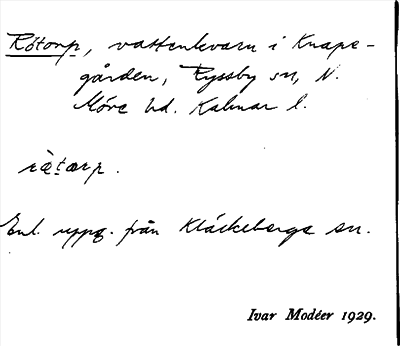 Rötorp, vattenkvarn i Knape-
gården, Ryssby sn, N.
Möre hd. Kalmar l.
rø̀tɔrp.
Enl. uppg. från Kläckeberga sn.
Ivar Modéer 1929.